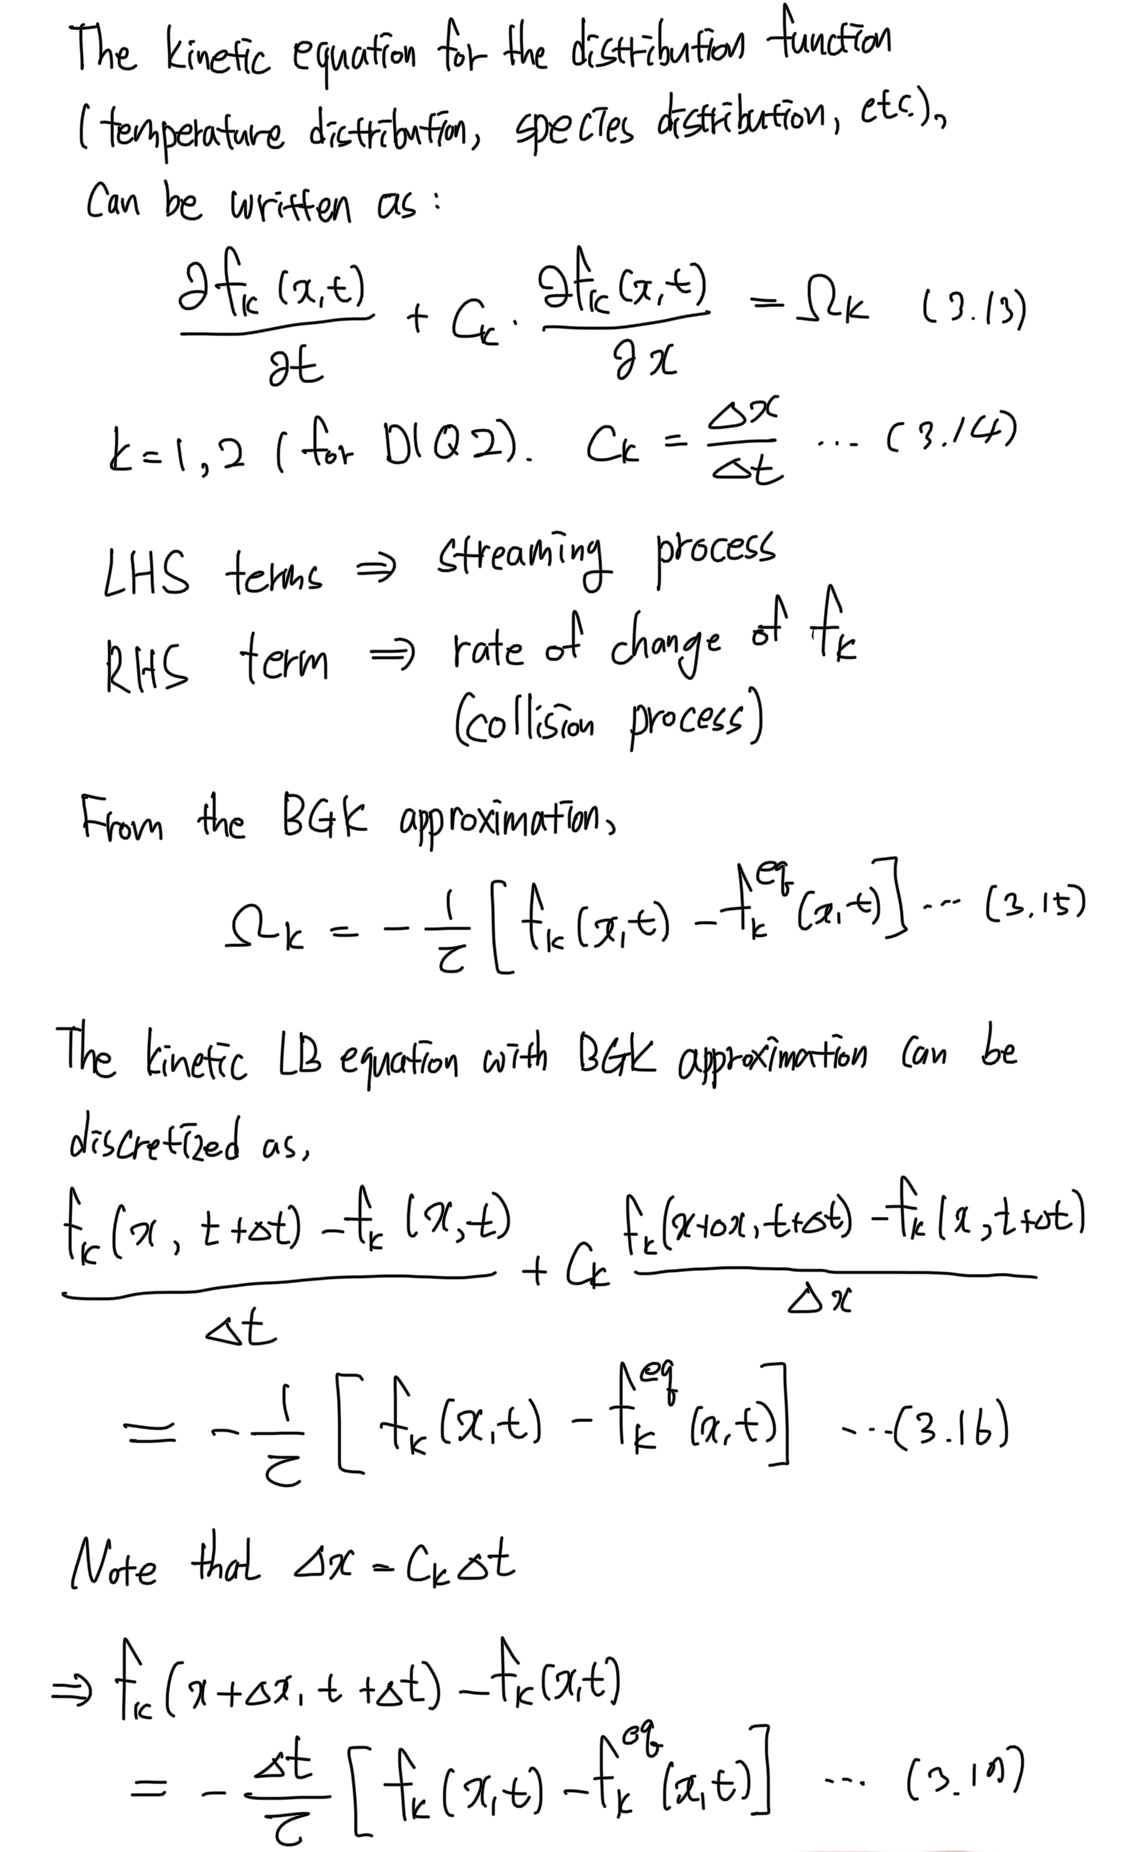 The kinetic equation for the distribution function
(temperature distribution, species distribution, etc.),
Can be written as:
∂fₖ(x,t)/∂t + Cₖ · ∂fₖ(x,t)/∂x = Ωₖ (3.13)
k=1,2 (for D1Q2). Cₖ = Δx/Δt ... (3.14)
LHS terms ⇒ streaming process
RHS term ⇒ rate of change of fₖ
(collision process)
From the BGK approximation,
Ωₖ = - 1/τ [fₖ(x,t) - fₖ^eq(x,t)] ... (3.15)
The kinetic LB equation with BGK approximation can be
discretized as,
fₖ(x, t+Δt) - fₖ(x,t)/Δt + Cₖ fₖ(x+Δx, t+Δt) - fₖ(x, t+Δt)/Δx
= - 1/τ [fₖ(x,t) - fₖ^eq(x,t)] ... (3.16)
Note that Δx = CₖΔt
⇒ fₖ(x+Δx, t+Δt) - fₖ(x,t)
= - Δt/τ [fₖ(x,t) - fₖ^eq(x,t)] ...